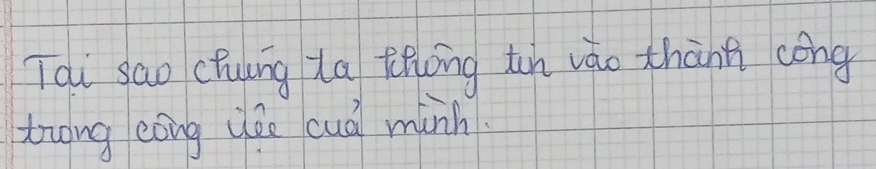 Tại sao chúng ta không tin vào thành công
trong công việc của mình.